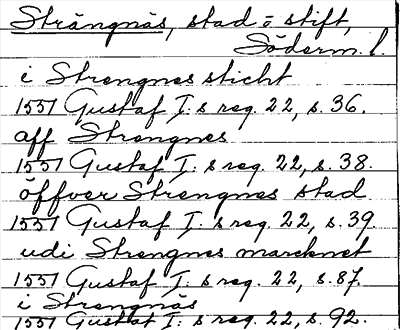 Strängnäs, stad o stift,
Söderm. l.
i Strengnes sticht
1551 Gustaf I: s reg. 22, s. 36.
aff Strengnes
1551 Gustaf I: s reg. 22, s. 38.
öffver Strengnes stad
1551 Gustaf I: s reg. 22, s. 39.
udi Strengnes marcknet
1551 Gustaf I: s reg. 22, s. 87.
i Strengnäs
1551 Gustaf I: s reg. 22, s. 92.